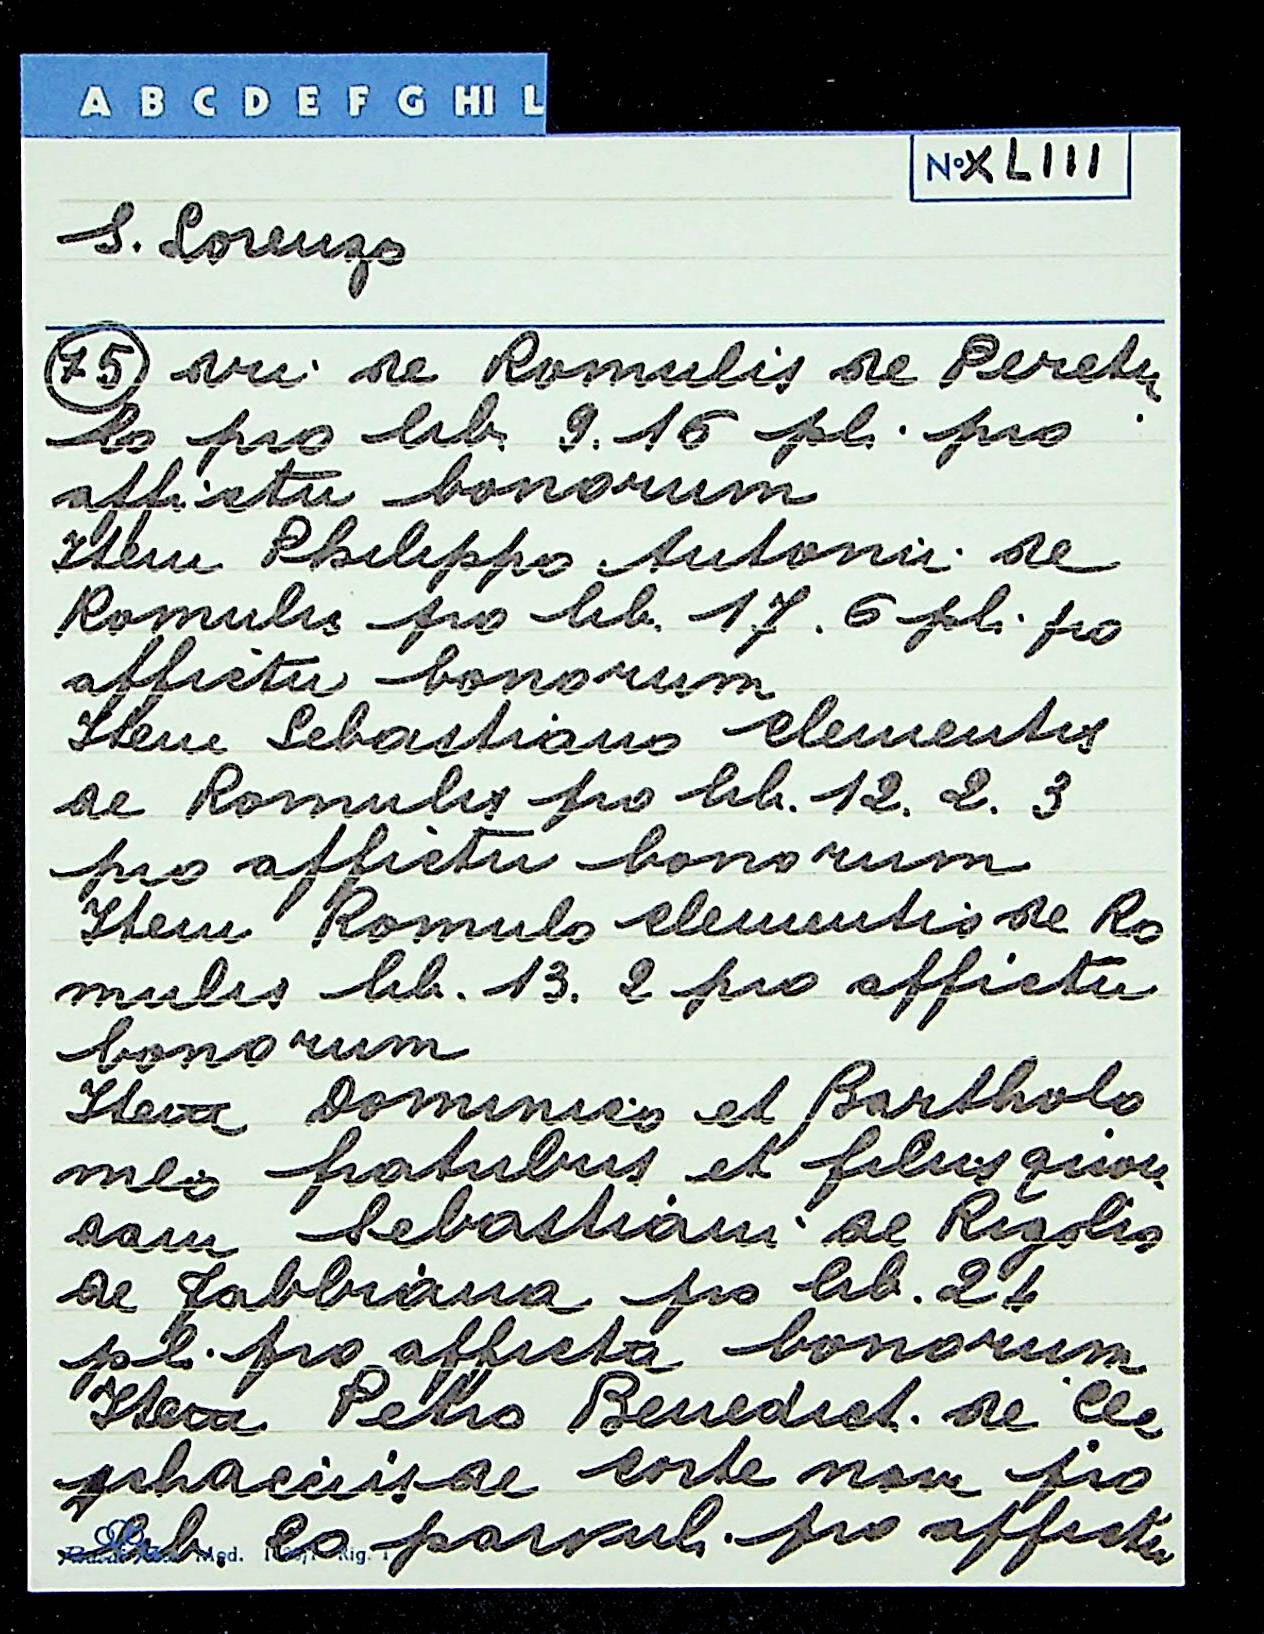 A B C D E F G HI L
N° XLIII
S. Lorenzo
75 dni. de Romulis de Peretu
lo pro lib. 9. 16 pl. pro
affictu bonorum
Item Philippo Antonii de
Romulis pro lib. 17. 6 pl. pro
affictu bonorum
Item Sebastiano Clementis
de Romulis pro lib. 12. 2. 3
pro affictu bonorum
Item Romulo Clementis de Ro
mulis lib. 13. 2 pro affictu
bonorum
Item Dominico et Bartholo
meo fratribus et filiis quon
dam Sebastiani de Rigolis
de Gabbiana pro lib. 21
pl. pro affictu bonorum
Item Petro Benedict. de
de corte nom pro
lib. 20 parvul. pro affictu
Mod. Rig.